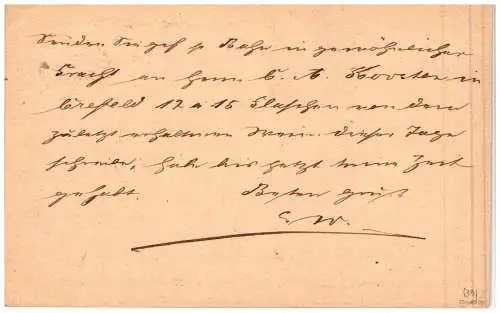 Senden Sie gef. p Bahn in gewöhnlicher
Fracht an Herrn C. A. Koverten in
Crefeld 12 à 15 Flaschen von dem
zuletzt erhaltenen Wein. Dieser Tage
schreibe, habe bis jetzt keine Zeit
gehabt. Besten Gruß
C. W.
(39)